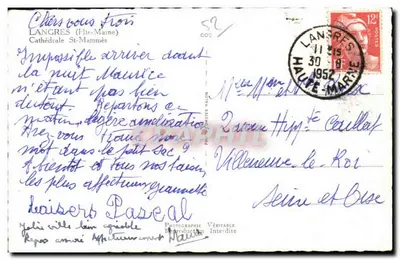 Chers vous trois
LANGRES (Hte-Marne)
Cathédrale St-Mammès
Impossible arriver avant
la nuit Maurice
n'étant pas bien
du tout. Repartons ce
matin légère amélioration
Avez vous trouvé mon
mot dans le petit sac ?
A bientôt et tous nos baisers
les plus affectueux
Baisers Pascal
Jolie ville bien agréable
Repos assuré Affectueusement
52
LANGRES
11 H 15
30 - 8
1952
HAUTE-MARNE
12F
2 Avenue Hippte Caillat
Villeneuve-le-Roi
Seine et Oise
PHOTOGRAPHIE VÉRITABLE
Reproduction Interdite